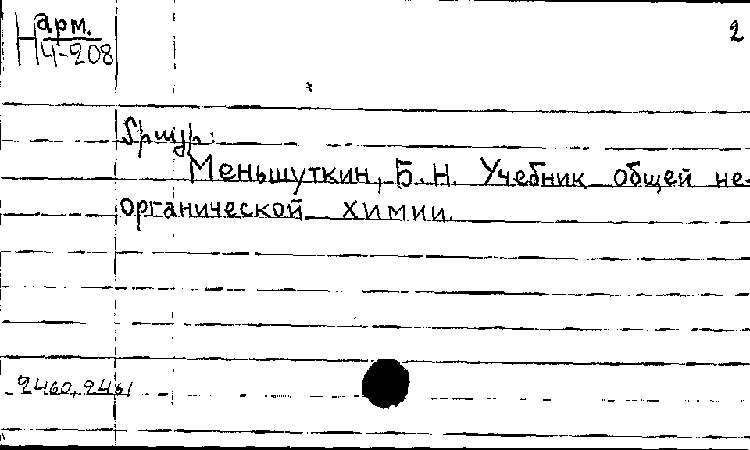 Н арм. 2
4-208
Меньшуткин, Б. Н. Учебник общей не-
органической химии.
2460, 2461